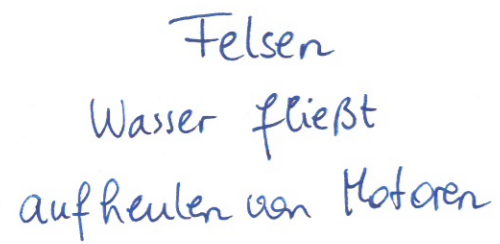 Felsen
Wasser fließt
aufheulen von Motoren